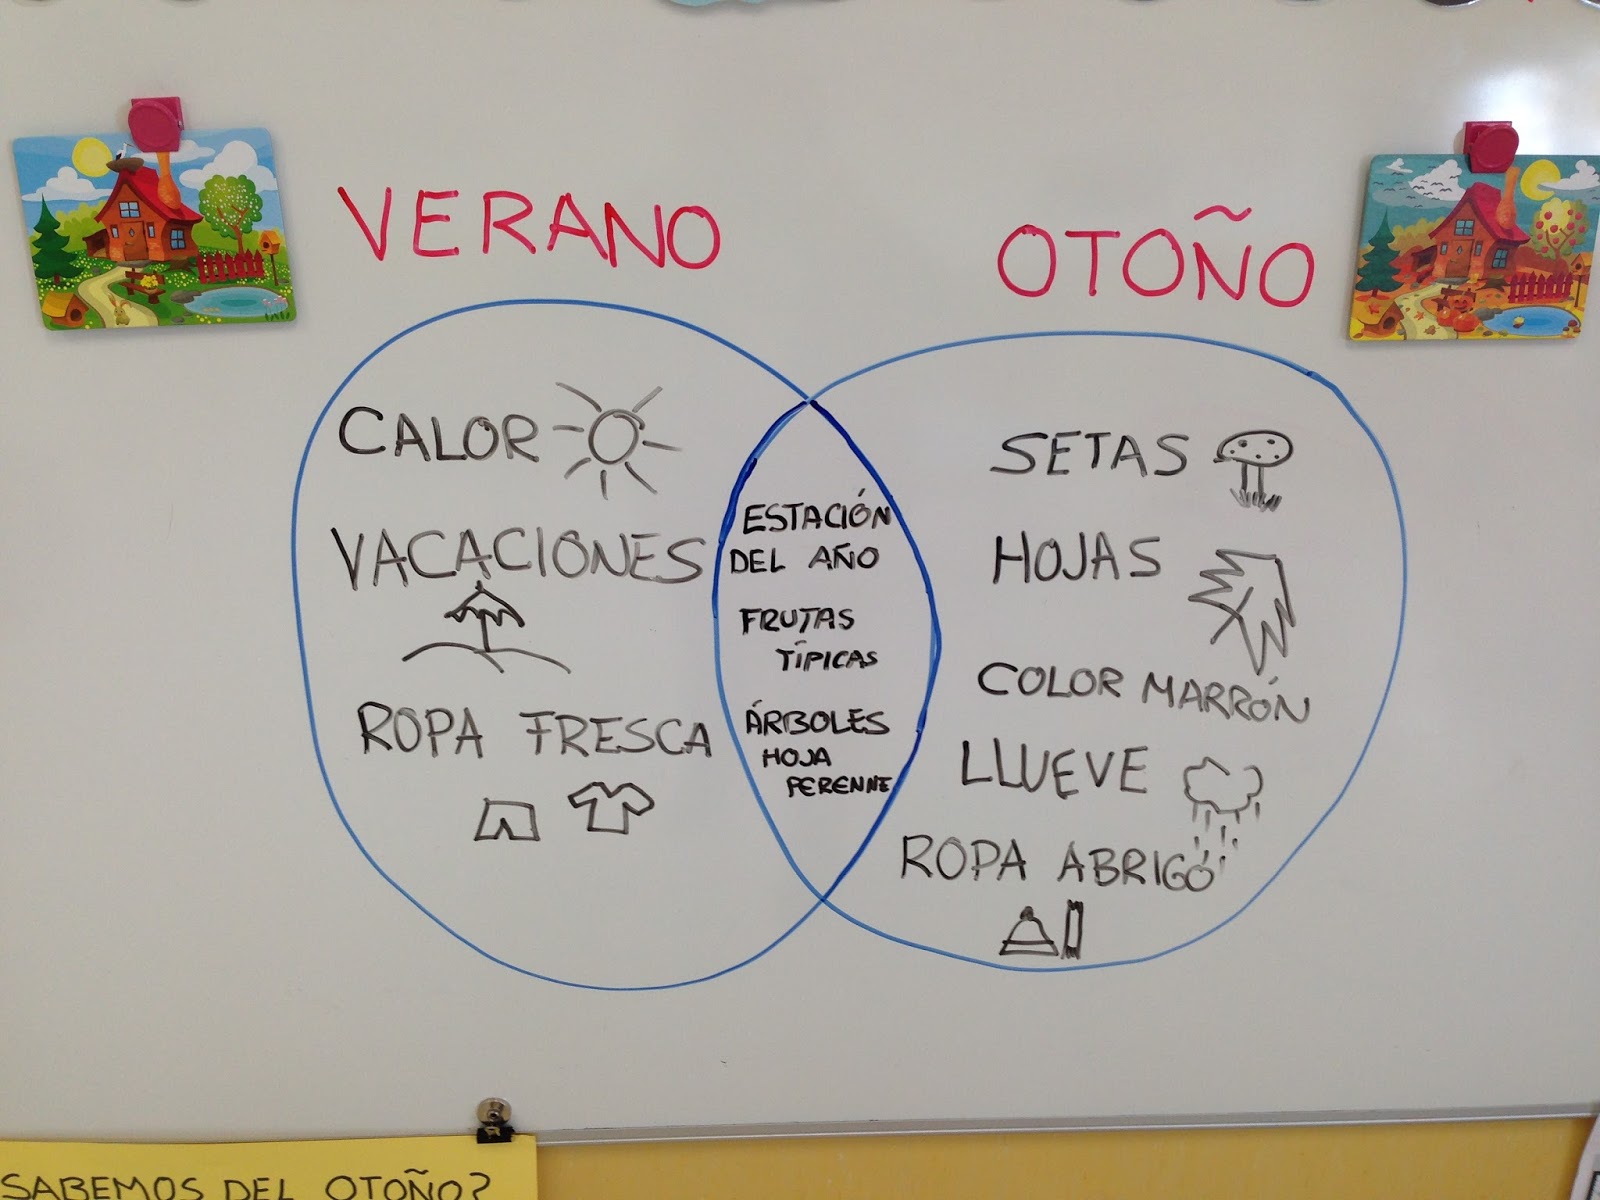 VERANO
OTOÑO
CALOR
VACACIONES
ROPA FRESCA
ESTACIÓN
DEL AÑO
FRUTAS
TÍPICAS
ÁRBOLES
HOJA
PERENNE
SETAS
HOJAS
COLOR MARRÓN
LLUEVE
ROPA ABRIGO
SABEMOS DEL OTOÑO?